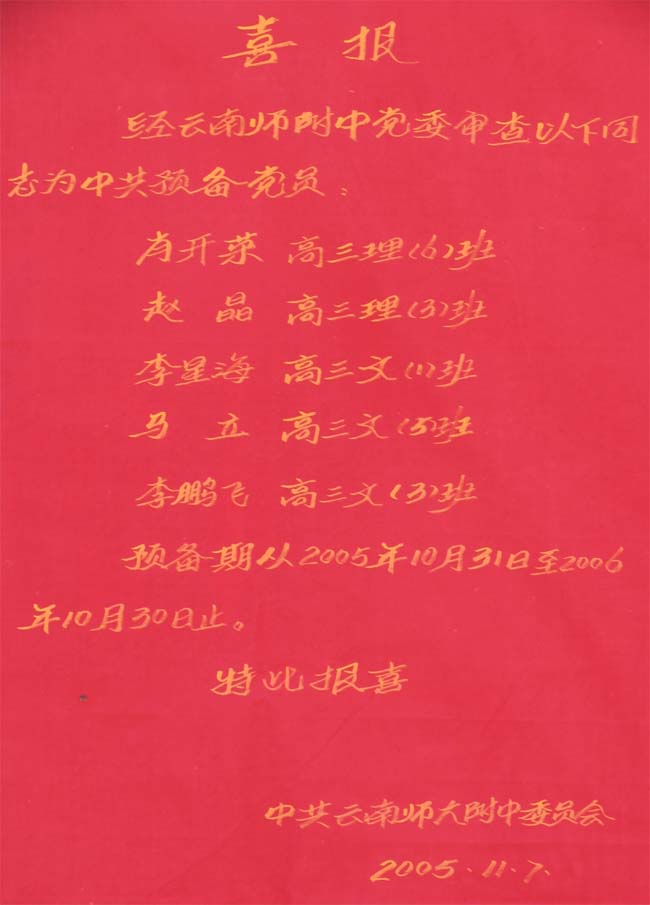 喜报
经云南师附中党委审查以下同
志为中共预备党员：
肖开荣 高三理(6)班
赵晶 高三理(3)班
李星海 高三文(1)班
马立 高三文(5)班
李鹏飞 高三文(3)班
预备期从2005年10月31日至2006
年10月30日止。
特此报喜
中共云南师大附中委员会
2005.11.7.